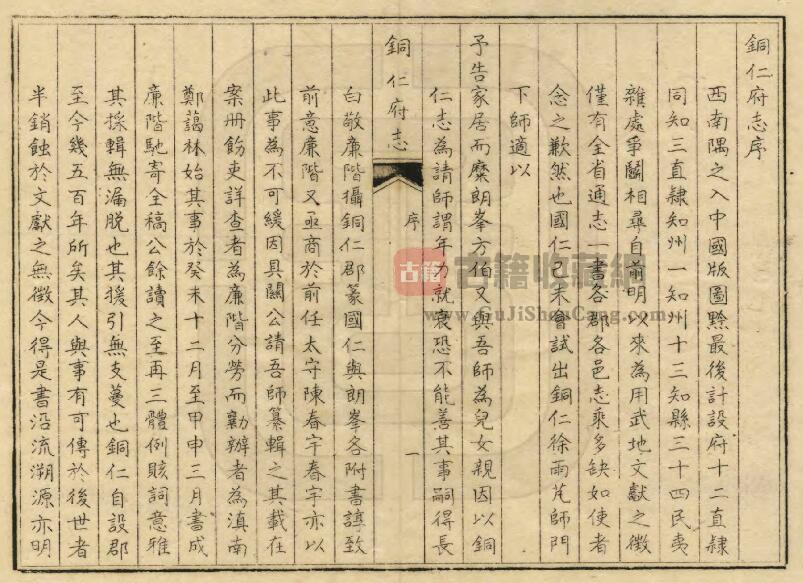 銅仁府志序
西南隅之入中國版圖黔最後計設府十二直隸
同知三直隸知州一知州十三知縣三十四民夷
雜處爭鬭相尋自前明以來為用武地文獻之徵
僅有全省通志一書各郡各邑志乘多缺如使者
念之歉然也國仁己未會試出銅仁徐雨芃師門
下師適以
予告家居而糜朗峯方伯又與吾師為兒女親因以銅
仁志為請師謂年力就衰恐不能善其事嗣得長
銅仁府志
序
一
白敬廉階攝銅仁郡篆國仁與朗峯各附書諄致
前意廉階又亟商於前任太守陳春宇春宇亦以
此事為不可緩因具關公請吾師纂輯之其載在
案册飭吏詳查者為廉階分勞而勷辦者為滇南
鄭藹林始其事於癸未十二月至甲申三月書成
廉階馳寄全稿公餘讀之至再三體例賅詞意雅
其採輯無漏脱也其援引無支蔓也銅仁自設郡
至今幾五百年所矣其人與事有可傳於後世者
半銷蝕於文獻之無徵今得是書沿流溯源亦明
古籍
古籍收藏網
www.GuJiShouCang.com